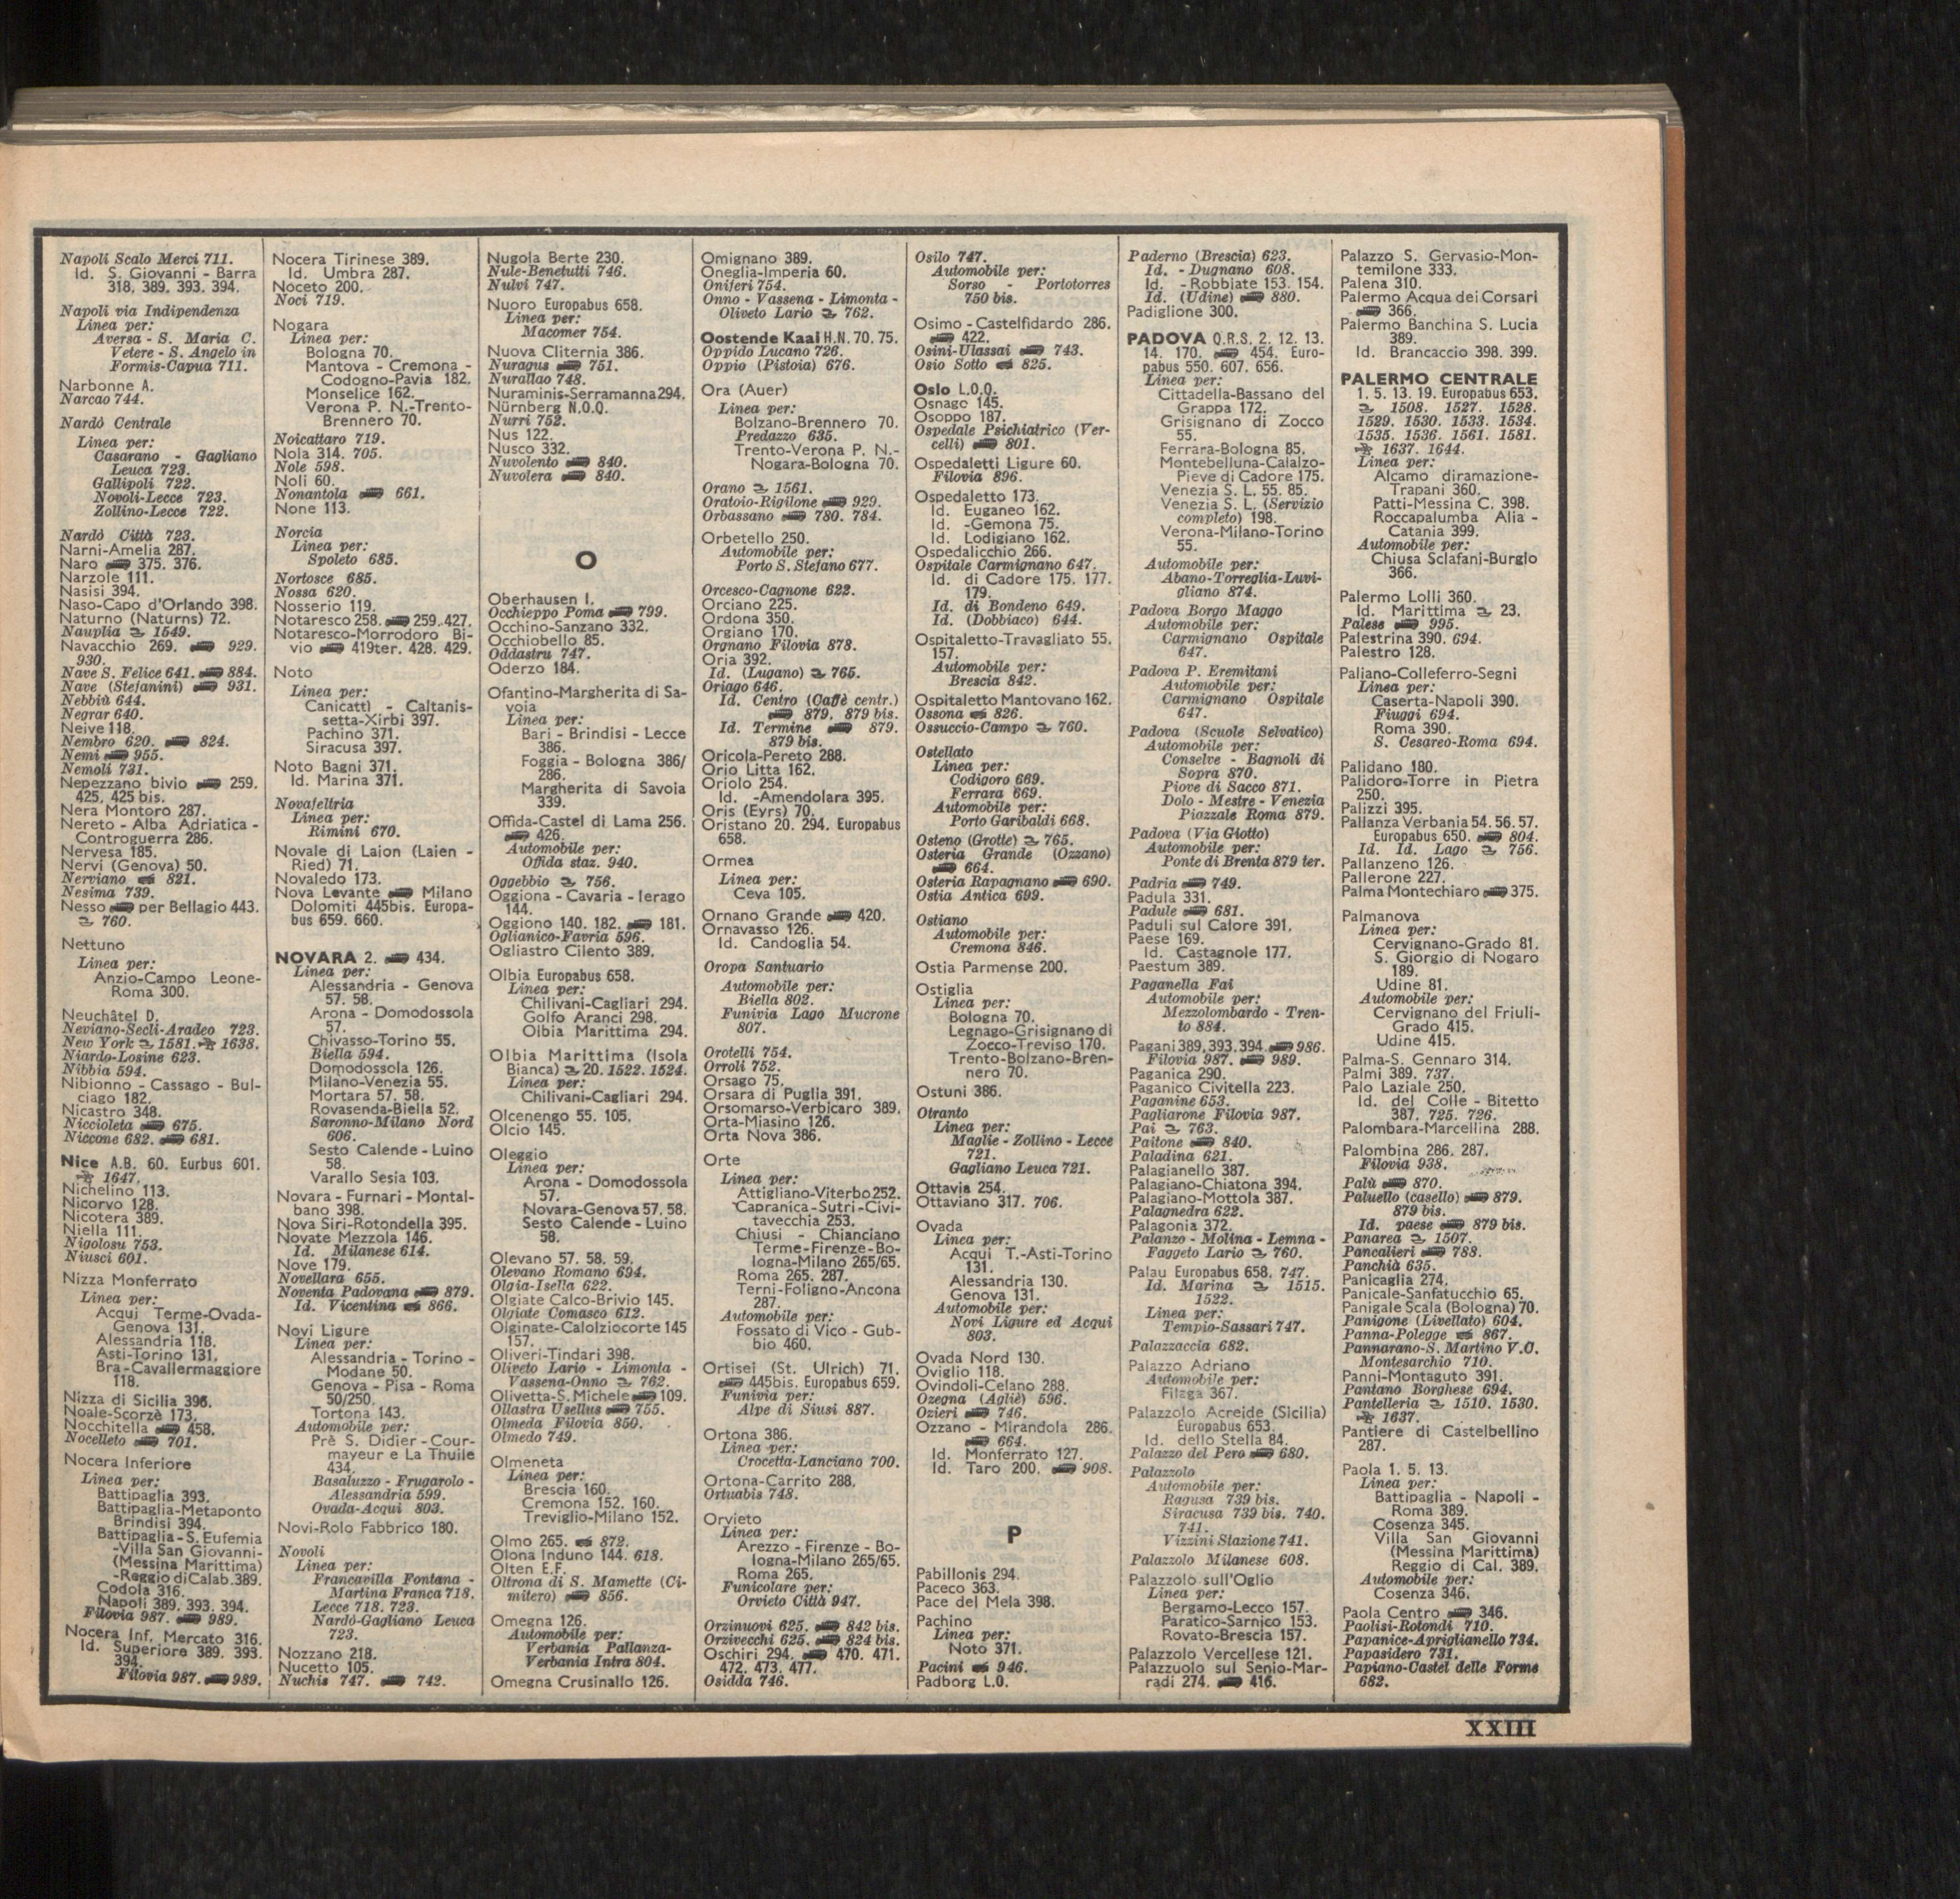 Napoli Scalo Merci 711.
Id. S. Giovanni - Barra
318. 389. 393. 394.
Napoli via Indipendenza
Linea per:
Aversa - S. Maria C.
Vetere - S. Angelo in
Formis-Capua 711.
Narbonne A.
Narcao 744.
Nardò Centrale
Linea per:
Casarano - Gagliano
Leuca 723.
Gallipoli 722.
Novoli-Lecce 723.
Zollino-Lecce 722.
Nardò Città 723.
Narni-Amelia 287.
Naro 375. 376.
Narzole 111.
Nasisi 394.
Naso-Capo d'Orlando 398.
Naturno (Naturns) 72.
Nauplia 1549.
Navacchio 269. 929.
930.
Nave S. Felice 641. 884.
Nave (Stefanini) 931.
Nebbiù 644.
Negrar 640.
Neive 118.
Nembro 620. 824.
Nemi 955.
Nemoli 731.
Nepezzano bivio 259.
425. 425 bis.
Nera Montoro 287.
Nereto - Alba Adriatica -
Controguerra 286.
Nervesa 185.
Nervi (Genova) 50.
Nerviano 821.
Nesima 739.
Nesso per Bellagio 443.
760.
Nettuno
Linea per:
Anzio-Campo Leone-
Roma 300.
Neuchâtel D.
Neviano-Secli-Aradeo 723.
New York 1581. 1638.
Niardo-Losine 623.
Nibbia 594.
Nibionno - Cassago - Bul-
ciago 182.
Nicastro 348.
Niccioleta 675.
Niccone 682. 681.
Nice A.B. 60. Eurbus 601.
1647.
Nichelino 113.
Nicorvo 128.
Nicotera 389.
Niella 111.
Nigolosu 753.
Niusci 601.
Nizza Monferrato
Linea per:
Acqui Terme-Ovada-
Genova 131.
Alessandria 118.
Asti-Torino 131.
Bra-Cavallermaggiore
118.
Nizza di Sicilia 396.
Noale-Scorzè 173.
Nocchitella 458.
Nocelleto 701.
Nocera Inferiore
Linea per:
Battipaglia 393.
Battipaglia-Metaponto
Brindisi 394.
Battipaglia-S. Eufemia
-Villa San Giovanni-
(Messina Marittima)
-Reggio di Calab. 389.
Codola 316.
Napoli 389. 393. 394.
Filovia 987. 989.
Nocera Inf. Mercato 316.
Id. Superiore 389. 393.
394.
Filovia 987. 989.
Nocera Tirinese 389.
Id. Umbra 287.
Noceto 200.
Noci 719.
Nogara
Linea per:
Bologna 70.
Mantova - Cremona -
Codogno-Pavia 182.
Monselice 162.
Verona P. N.-Trento-
Brennero 70.
Noicattaro 719.
Nola 314. 705.
Nole 598.
Noli 60.
Nonantola 661.
None 113.
Norcia
Linea per:
Spoleto 685.
Nortosce 685.
Nossa 620.
Nosserio 119.
Notaresco 258. 259. 427.
Notaresco-Morrodoro Bi-
vio 419ter. 428. 429.
Noto
Linea per:
Canicattì - Caltanis-
setta-Xirbi 397.
Pachino 371.
Siracusa 397.
Noto Bagni 371.
Id. Marina 371.
Novafeltria
Linea per:
Rimini 670.
Novale di Laion (Laien -
Ried) 71.
Novaledo 173.
Nova Levante Milano
Dolomiti 445bis. Europa-
bus 659. 660.
NOVARA 2. 434.
Linea per:
Alessandria - Genova
57. 58.
Arona - Domodossola
57.
Chivasso-Torino 55.
Biella 594.
Domodossola 126.
Milano-Venezia 55.
Mortara 57. 58.
Rovasenda-Biella 52.
Saronno-Milano Nord
606.
Sesto Calende - Luino
58.
Varallo Sesia 103.
Novara - Furnari - Montal-
bano 398.
Nova Siri-Rotondella 395.
Novate Mezzola 146.
Id. Milanese 614.
Nove 179.
Novellara 655.
Noventa Padovana 879.
Id. Vicentina 866.
Novi Ligure
Linea per:
Alessandria - Torino -
Modane 50.
Genova - Pisa - Roma
50/250.
Tortona 143.
Automobile per:
Prè S. Didier - Cour-
mayeur e La Thuile
434.
Basaluzzo - Frugarolo -
Alessandria 599.
Ovada-Acqui 803.
Novi-Rolo Fabbrico 180.
Novoli
Linea per:
Francavilla Fontana -
Martina Franca 718.
Lecce 718. 723.
Nardò-Gagliano Leuca
723.
Nozzano 218.
Nucetto 105.
Nuchis 747. 742.
Nugola Berte 230.
Nule-Benetutti 746.
Nulvi 747.
Nuoro Europabus 658.
Linea per:
Macomer 754.
Nuova Cliternia 386.
Nuragus 751.
Nurallao 748.
Nuraminis-Serramanna 294.
Nürnberg N.O.Q.
Nurri 752.
Nus 122.
Nusco 332.
Nuvolento 840.
Nuvolera 840.
O
Oberhausen I.
Occhieppo Poma 799.
Occhino-Sanzano 332.
Occhiobello 85.
Oddastru 747.
Oderzo 184.
Ofantino-Margherita di Sa-
voia
Linea per:
Bari - Brindisi - Lecce
386.
Foggia - Bologna 386/
286.
Margherita di Savoia
339.
Offida-Castel di Lama 256.
426.
Automobile per:
Offida staz. 940.
Oggebbio 756.
Oggiona - Cavaria - Ierago
144.
Oggiono 140. 182. 181.
Oglianico-Favria 596.
Ogliastro Cilento 389.
Olbia Europabus 658.
Linea per:
Chilivani-Cagliari 294.
Golfo Aranci 298.
Olbia Marittima 294.
Olbia Marittima (Isola
Bianca) 20. 1522. 1524.
Linea per:
Chilivani-Cagliari 294.
Olcenengo 55. 105.
Olcio 145.
Oleggio
Linea per:
Arona - Domodossola
57.
Novara-Genova 57. 58.
Sesto Calende - Luino
58.
Olevano 57. 58. 59.
Olevano Romano 694.
Olgia-Isella 622.
Olgiate Calco-Brivio 145.
Olgiate Comasco 612.
Olginate-Calolziocorte 145
157.
Oliveri-Tindari 398.
Oliveto Lario - Limonta -
Vassena-Onno 762.
Olivetta-S. Michele 109.
Ollastra Usellus 755.
Olmeda Filovia 850.
Olmedo 749.
Olmeneta
Linea per:
Brescia 160.
Cremona 152. 160.
Treviglio-Milano 152.
Olmo 265. 872.
Olona Induno 144. 618.
Olten E.F.
Oltrona di S. Mamette (Ci-
mitero) 856.
Omegna 126.
Automobile per:
Verbania Pallanza-
Verbania Intra 804.
Omegna Crusinallo 126.
Omignano 389.
Oneglia-Imperia 60.
Oniferi 754.
Onno - Vassena - Limonta -
Oliveto Lario 762.
Oostende Kaai H.N. 70. 75.
Oppido Lucano 726.
Oppio (Pistoia) 676.
Ora (Auer)
Linea per:
Bolzano-Brennero 70.
Predazzo 635.
Trento-Verona P. N.-
Nogara-Bologna 70.
Orano 1561.
Oratoio-Rigilone 929.
Orbassano 780. 784.
Orbetello 250.
Automobile per:
Porto S. Stefano 677.
Orcesco-Cagnone 622.
Orciano 225.
Ordona 350.
Orgiano 170.
Orgnano Filovia 878.
Oria 392.
Id. (Lugano) 765.
Oriago 646.
Id. Centro (Caffè centr.)
879. 879 bis.
Id. Termine 879.
879 bis.
Oricola-Pereto 288.
Orio Litta 162.
Oriolo 254.
Id. -Amendolara 395.
Oris (Eyrs) 70.
Oristano 20. 294. Europabus
658.
Ormea
Linea per:
Ceva 105.
Ornano Grande 420.
Ornavasso 126.
Id. Candoglia 54.
Oropa Santuario
Automobile per:
Biella 802.
Funivia Lago Mucrone
807.
Orotelli 754.
Orroli 752.
Orsago 75.
Orsara di Puglia 391.
Orsomarso-Verbicaro 389.
Orta-Miasino 126.
Orta Nova 386.
Orte
Linea per:
Attigliano-Viterbo 252.
Capranica-Sutri-Civi-
tavecchia 253.
Chiusi - Chianciano
Terme-Firenze-Bo-
logna-Milano 265/65.
Roma 265. 287.
Terni-Foligno-Ancona
287.
Automobile per:
Fossato di Vico - Gub-
bio 460.
Ortisei (St. Ulrich) 71.
445bis. Europabus 659.
Funivia per:
Alpe di Siusi 887.
Ortona 386.
Linea per:
Crocetta-Lanciano 700.
Ortona-Carrito 288.
Ortuabis 748.
Orvieto
Linea per:
Arezzo - Firenze - Bo-
logna-Milano 265/65.
Roma 265.
Funicolare per:
Orvieto Città 947.
Orzinuovi 625. 842 bis.
Orzivecchi 625. 824 bis.
Oschiri 294. 470. 471.
472. 473. 477.
Osidda 746.
Osilo 747.
Automobile per:
Sorso - Portotorres
750 bis.
Osimo - Castelfidardo 286.
422.
Osini-Ulassai 743.
Osio Sotto 825.
Oslo L.O.Q.
Osnago 145.
Osoppo 187.
Ospedale Psichiatrico (Ver-
celli) 801.
Ospedaletti Ligure 60.
Filovia 896.
Ospedaletto 173.
Id. Euganeo 162.
Id. -Gemona 75.
Id. Lodigiano 162.
Ospedalicchio 266.
Ospitale Carmignano 647.
Id. di Cadore 175. 177.
179.
Id. di Bondeno 649.
Id. (Dobbiaco) 644.
Ospitaletto-Travagliato 55.
157.
Automobile per:
Brescia 842.
Ospitaletto Mantovano 162.
Ossona 826.
Ossuccio-Campo 760.
Ostellato
Linea per:
Codigoro 669.
Ferrara 669.
Automobile per:
Porto Garibaldi 668.
Osteno (Grotte) 765.
Osteria Grande (Ozzano)
664.
Osteria Rapagnano 690.
Ostia Antica 699.
Ostiano
Automobile per:
Cremona 846.
Ostia Parmense 200.
Ostiglia
Linea per:
Bologna 70.
Legnago-Grisignano di
Zocco-Treviso 170.
Trento-Bolzano-Bren-
nero 70.
Ostuni 386.
Otranto
Linea per:
Maglie - Zollino - Lecce
721.
Gagliano Leuca 721.
Ottavia 254.
Ottaviano 317. 706.
Ovada
Linea per:
Acqui T.-Asti-Torino
131.
Alessandria 130.
Genova 131.
Automobile per:
Novi Ligure ed Acqui
803.
Ovada Nord 130.
Oviglio 118.
Ovindoli-Celano 288.
Ozegna (Agliè) 596.
Ozieri 746.
Ozzano - Mirandola 286.
664.
Id. Monferrato 127.
Id. Taro 200. 908.
P
Pabillonis 294.
Paceco 363.
Pace del Mela 398.
Pachino
Linea per:
Noto 371.
Pacini 946.
Padborg L.O.
Paderno (Brescia) 623.
Id. - Dugnano 608.
Id. - Robbiate 153. 154.
Id. (Udine) 880.
Padiglione 300.
PADOVA Q.R.S. 2. 12. 13.
14. 170. 454. Euro-
pabus 550. 607. 656.
Linea per:
Cittadella-Bassano del
Grappa 172.
Grisignano di Zocco
55.
Ferrara-Bologna 85.
Montebelluna-Calalzo-
Pieve di Cadore 175.
Venezia S. L. 55. 85.
Venezia S. L. (Servizio
completo) 198.
Verona-Milano-Torino
55.
Automobile per:
Abano-Torreglia-Luvi-
gliano 874.
Padova Borgo Maggo
Automobile per:
Carmignano Ospitale
647.
Padova P. Eremitani
Automobile per:
Carmignano Ospitale
647.
Padova (Scuole Selvatico)
Automobile per:
Conselve - Bagnoli di
Sopra 870.
Piove di Sacco 871.
Dolo - Mestre - Venezia
Piazzale Roma 879.
Padova (Via Giotto)
Automobile per:
Ponte di Brenta 879 ter.
Padria 749.
Padula 331.
Padule 681.
Paduli sul Calore 391.
Paese 169.
Id. Castagnole 177.
Paestum 389.
Paganella Fai
Automobile per:
Mezzolombardo - Tren-
to 884.
Pagani 389. 393. 394. 986.
Filovia 987. 989.
Paganica 290.
Paganico Civitella 223.
Paganine 653.
Pagliarone Filovia 987.
Pai 763.
Paitone 840.
Paladina 621.
Palagianello 387.
Palagiano-Chiatona 394.
Palagiano-Mottola 387.
Palagnedra 622.
Palagonia 372.
Palanzo - Molina - Lemna -
Faggeto Lario 760.
Palau Europabus 658. 747.
Id. Marina 1515.
1522.
Linea per:
Tempio-Sassari 747.
Palazzaccia 682.
Palazzo Adriano
Automobile per:
Filaga 367.
Palazzolo Acreide (Sicilia)
Europabus 653.
Id. dello Stella 84.
Palazzo del Pero 680.
Palazzolo
Automobile per:
Ragusa 739 bis.
Siracusa 739 bis. 740.
741.
Vizzini Stazione 741.
Palazzolo Milanese 608.
Palazzolo sull'Oglio
Linea per:
Bergamo-Lecco 157.
Paratico-Sarnico 153.
Rovato-Brescia 157.
Palazzolo Vercellese 121.
Palazzuolo sul Senio-Mar-
radi 274. 416.
Palazzo S. Gervasio-Mon-
temilone 333.
Palena 310.
Palermo Acqua dei Corsari
366.
Palermo Banchina S. Lucia
389.
Id. Brancaccio 398. 399.
PALERMO CENTRALE
1. 5. 13. 19. Europabus 653.
1508. 1527. 1528.
1529. 1530. 1533. 1534.
1535. 1536. 1561. 1581.
1637. 1644.
Linea per:
Alcamo diramazione-
Trapani 360.
Patti-Messina C. 398.
Roccapalumba Alia -
Catania 399.
Automobile per:
Chiusa Sclafani-Burgio
366.
Palermo Lolli 360.
Id. Marittima 23.
Palese 995.
Palestrina 390. 694.
Palestro 128.
Paliano-Colleferro-Segni
Linea per:
Caserta-Napoli 390.
Fiuggi 694.
Roma 390.
S. Cesareo-Roma 694.
Palidano 180.
Palidoro-Torre in Pietra
250.
Palizzi 395.
Pallanza Verbania 54. 56. 57.
Europabus 650. 804.
Id. Id. Lago 756.
Pallanzeno 126.
Pallerone 227.
Palma Montechiaro 375.
Palmanova
Linea per:
Cervignano-Grado 81.
S. Giorgio di Nogaro
189.
Udine 81.
Automobile per:
Cervignano del Friuli-
Grado 415.
Udine 415.
Palma-S. Gennaro 314.
Palmi 389. 737.
Palo Laziale 250.
Id. del Colle - Bitetto
387. 725. 726.
Palombara-Marcellina 288.
Palombina 286. 287.
Filovia 938.
Palù 870.
Paluello (casello) 879.
879 bis.
Id. paese 879 bis.
Panarea 1507.
Pancalieri 788.
Panchià 635.
Panicaglia 274.
Panicale-Sanfatucchio 65.
Panigale Scala (Bologna) 70.
Panigone (Livellato) 604.
Panna-Polegge 867.
Pannarano-S. Martino V.C.
Montesarchio 710.
Panni-Montaguto 391.
Pantano Borghese 694.
Pantelleria 1510. 1530.
1637.
Pantiere di Castelbellino
287.
Paola 1. 5. 13.
Linea per:
Battipaglia - Napoli -
Roma 389.
Cosenza 345.
Villa San Giovanni
(Messina Marittima)
Reggio di Cal. 389.
Automobile per:
Cosenza 346.
Paola Centro 346.
Paolisi-Rotondi 710.
Papanice-Apriglianello 734.
Papasidero 731.
Papiano-Castel delle Forme
682.
XXIII